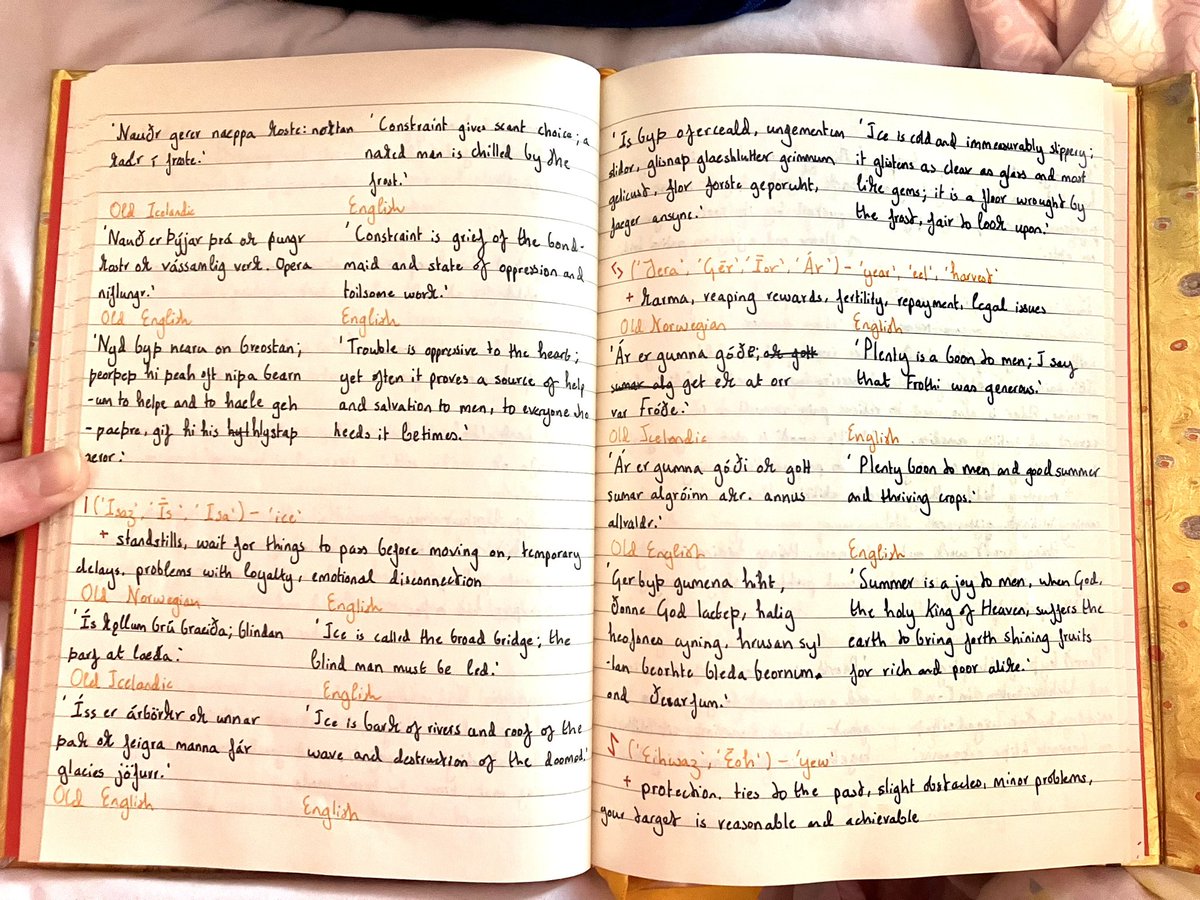 'Nauðr gerer naeppa koste: nøktan
kaelr í froste.'
'Constraint gives scant choice; a
naked man is chilled by the
frost.'
Old Icelandic
English
'Nauð er Þýjar þrá ok þungr
kostr ok vássamlig verk. Opera
niflungr.'
'Constraint is grief of the bond-
maid and state of oppression and
toilsome work.'
Old English
English
'Nyd byþ nearu on breostan;
þeorþeþ hi þeah oft niþa bearn
-um to helpe and to haele geh
-paeþre, gif hi his hythlystaþ
aeror.'
'Trouble is oppressive to the heart;
yet often it proves a source of help
and salvation to men, to everyone who
heeds it betimes.'
ᛁ ('Isaz', 'Īs', 'Isa') - 'ice'
+ standstills, wait for things to pass before moving on, temporary
delays, problems with loyalty, emotional disconnection
Old Norwegian
English
'Ís kǫllum brú braeiða; blindan
þarf at laeða.'
'Ice is called the broad bridge; the
blind man must be led.'
Old Icelandic
English
'Íss er árbörkr ok unnar
þak ok feigra manna fár
glacies jöfurr.'
'Ice is bark of rivers and roof of the
wave and destruction of the doomed.'
Old English
English
'Is byþ oferceald, ungemetum
slidor, glisnaþ glaeshlutter grimmum
gelicust, flor forste geporuht,
faeger ansyne.'
'Ice is cold and immeasurably slippery;
it glistens as clear as glass and most
like gems; it is a floor wrought by
the frost, fair to look upon.'
ᛃ ('Jera', 'Gēr', 'Īor', 'Ár') - 'year', 'eel', 'harvest'
+ karma, reaping rewards, fertility, repayment, legal issues
Old Norwegian
English
'Ár er gumna góðe; ok gott
sumar alg get ek at orr
var Fróðe.'
'Plenty is a boon to men; I say
that Frothi was generous.'
Old Icelandic
English
'Ár er gumna góði ok gott
sumar algróinn akr. annus
allvaldr.'
'Plenty boon to men and good summer
and thriving crops.'
Old English
English
'Ger byþ gumena hiht,
ðonne God laeteþ, halig
heofones cyning, hrusan syl
-lan beorhte bleda beornum
and ðearfum.'
'Summer is a joy to men, when God,
the holy King of Heaven, suffers the
earth to bring forth shining fruits
for rich and poor alike.'
ᛇ ('Eihwaz', 'Ēoh') - 'yew'
+ protection, ties to the past, slight obstacles, minor problems,
your target is reasonable and achievable